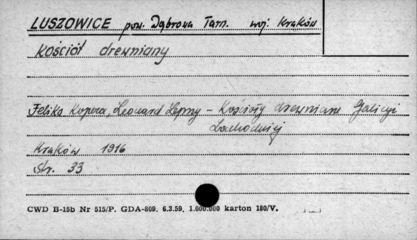 LUSZOWICE pow. Dąbrowa Tarn. woj. Kraków
Kościół drewniany
Feliks Kopera, Leonard Lepszy - Kościoły drewniane Galicyi
Zachodniej
Kraków 1916
str. 33
CWD B-15b Nr 515/P. GDA-809. 6.3.59. 1.000.000 karton 180/V.